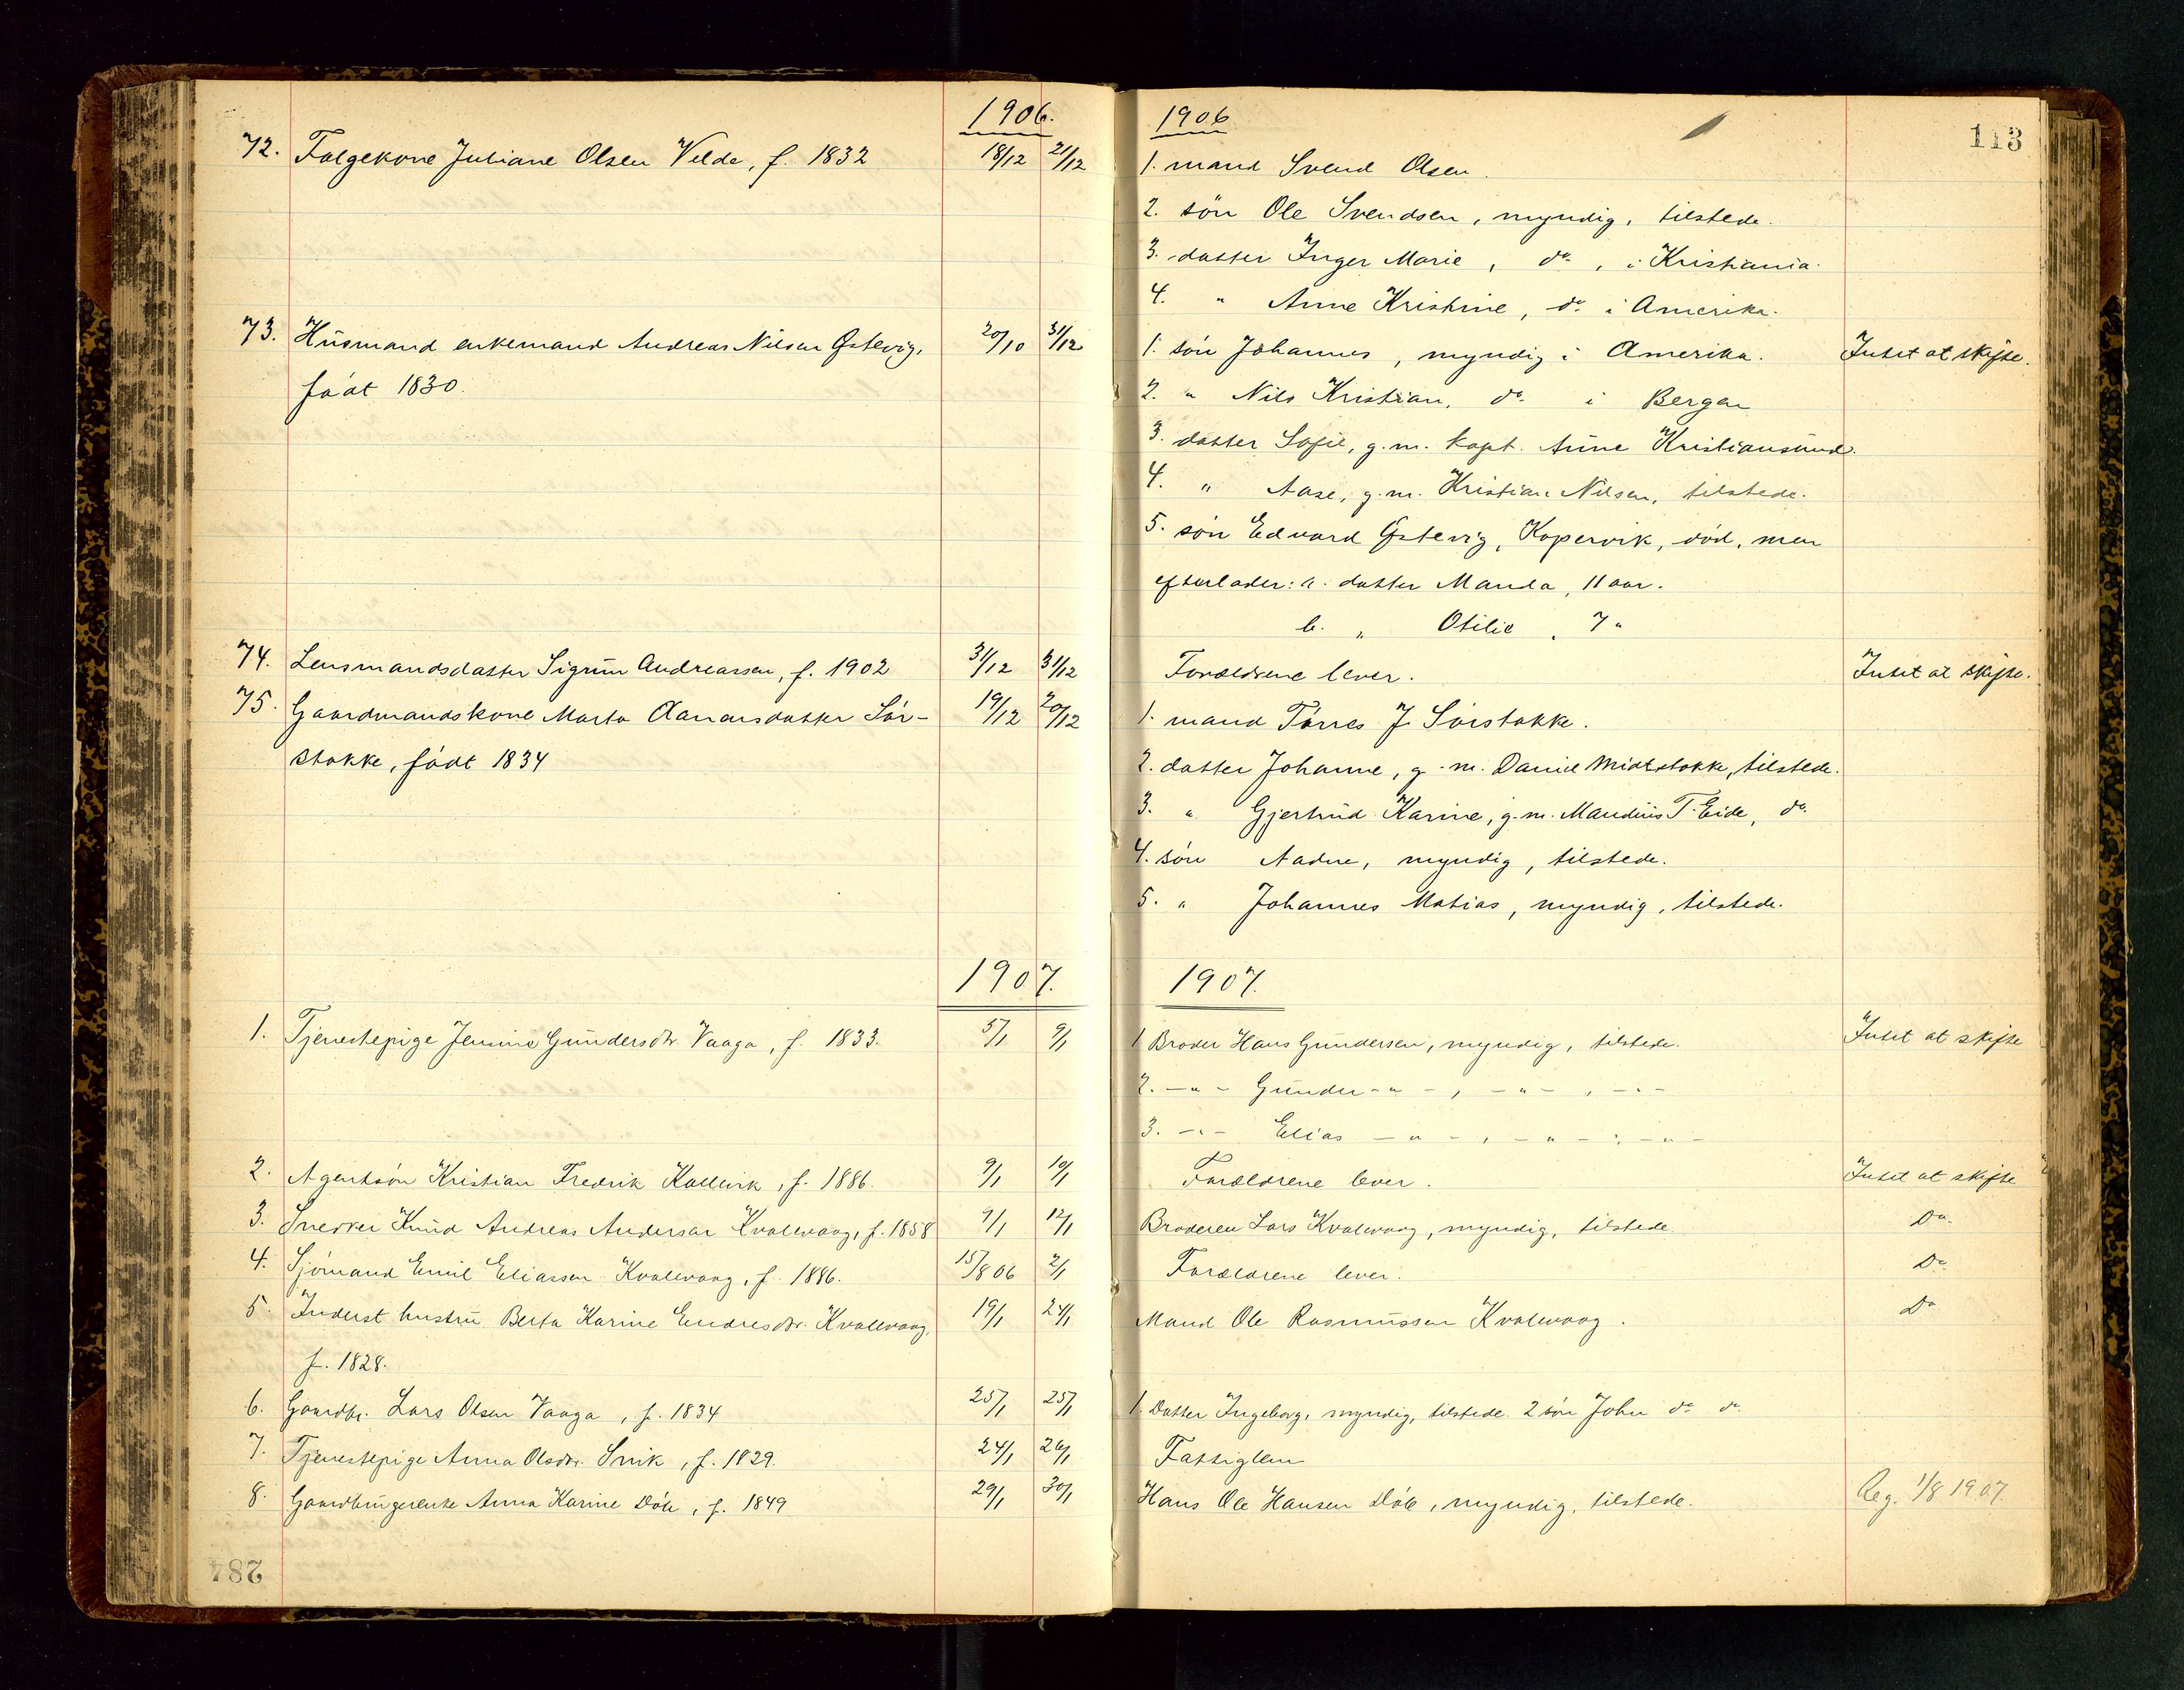 1906.
72. Folgekone Juliane Olsen Velde, f. 1832 18/12 21/12
73. Husmand enkemand Andreas Nilsen Østevig, 20/10 31/12
født 1830.
74. Lensmandsdatter Sigrun Andreassen, f. 1902 31/12 31/12
75. Gaardmandskone Marta Aanensdatter Sør- 19/12 20/12
stokke, født 1834
1907.
1. Tjenestepige Jemine Gundersdtr. Vaaga, f. 1833. 5/1 9/1
2. Agentsøn Kristian Fredrik Kallevik, f. 1886. 9/1 10/1
3. Snekker Knud Andreas Andersen Kvalevaag, f. 1858 9/1 12/1
4. Sjømand Emil Eliassen Kvalevaag, f. 1886. 15/8 06 2/1
5. Inderst hustru Berta Karine Endresdtr. Kvalevaag, 19/1 24/1
f. 1828.
6. Gaardbr. Lars Olsen Vaaga, f. 1834 25/1 25/1
7. Tjenestepige Anna Olsdtr. Snik, f. 1829. 24/1 26/1
8. Gaardbrugerenke Anna Karine Døle, f. 1849 29/1 30/1
284
1906
113
1. mand Svend Olsen.
2. søn Ole Svendsen, myndig, tilstede.
3. datter Inger Marie, do., i Kristiania.
4. " Anne Kristine, do. i Amerika.
1. søn Johannes, myndig i Amerika. Intet at skifte.
2. " Nils Kristian, do. i Bergen
3. datter Sofie, g.m. kapt. Aune Kristiansund.
4. " Aase, g.m. Kristian Nilsen, tilstede.
5. søn Edvard Østevig, Kopervik, død, men
efterlader: a. datter Manda, 11 aar.
b. " Otilie, 7 "
Forældrene lever. Intet at skifte.
1. mand Tørres J. Sørstokke.
2. datter Johanne, g.m. Daniel Midtstokke, tilstede.
3. " Gjertrud Karine, g.m. Mandius T. Eide, do.
4. søn Aadne, myndig, tilstede.
5. " Johannes Matias, myndig, tilstede.
1907.
1 Broder Hans Gundersen, myndig, tilstede. Intet at skifte
2. - " - Gunder - " - , - " - , - " -
3. - " - Elias - " - , - " - , - " -
Forældrene lever. Intet at skifte
Broderen Lars Kvalevaag, myndig, tilstede. Do.
Forældrene lever. Do.
Mand Ole Rasmussen Kvalevaag. Do
1. Datter Ingeborg, myndig, tilstede. 2 søn John do do.
Fattiglem
Hans Ole Hansen Døle, myndig, tilstede. Reg. 1/8 1907.